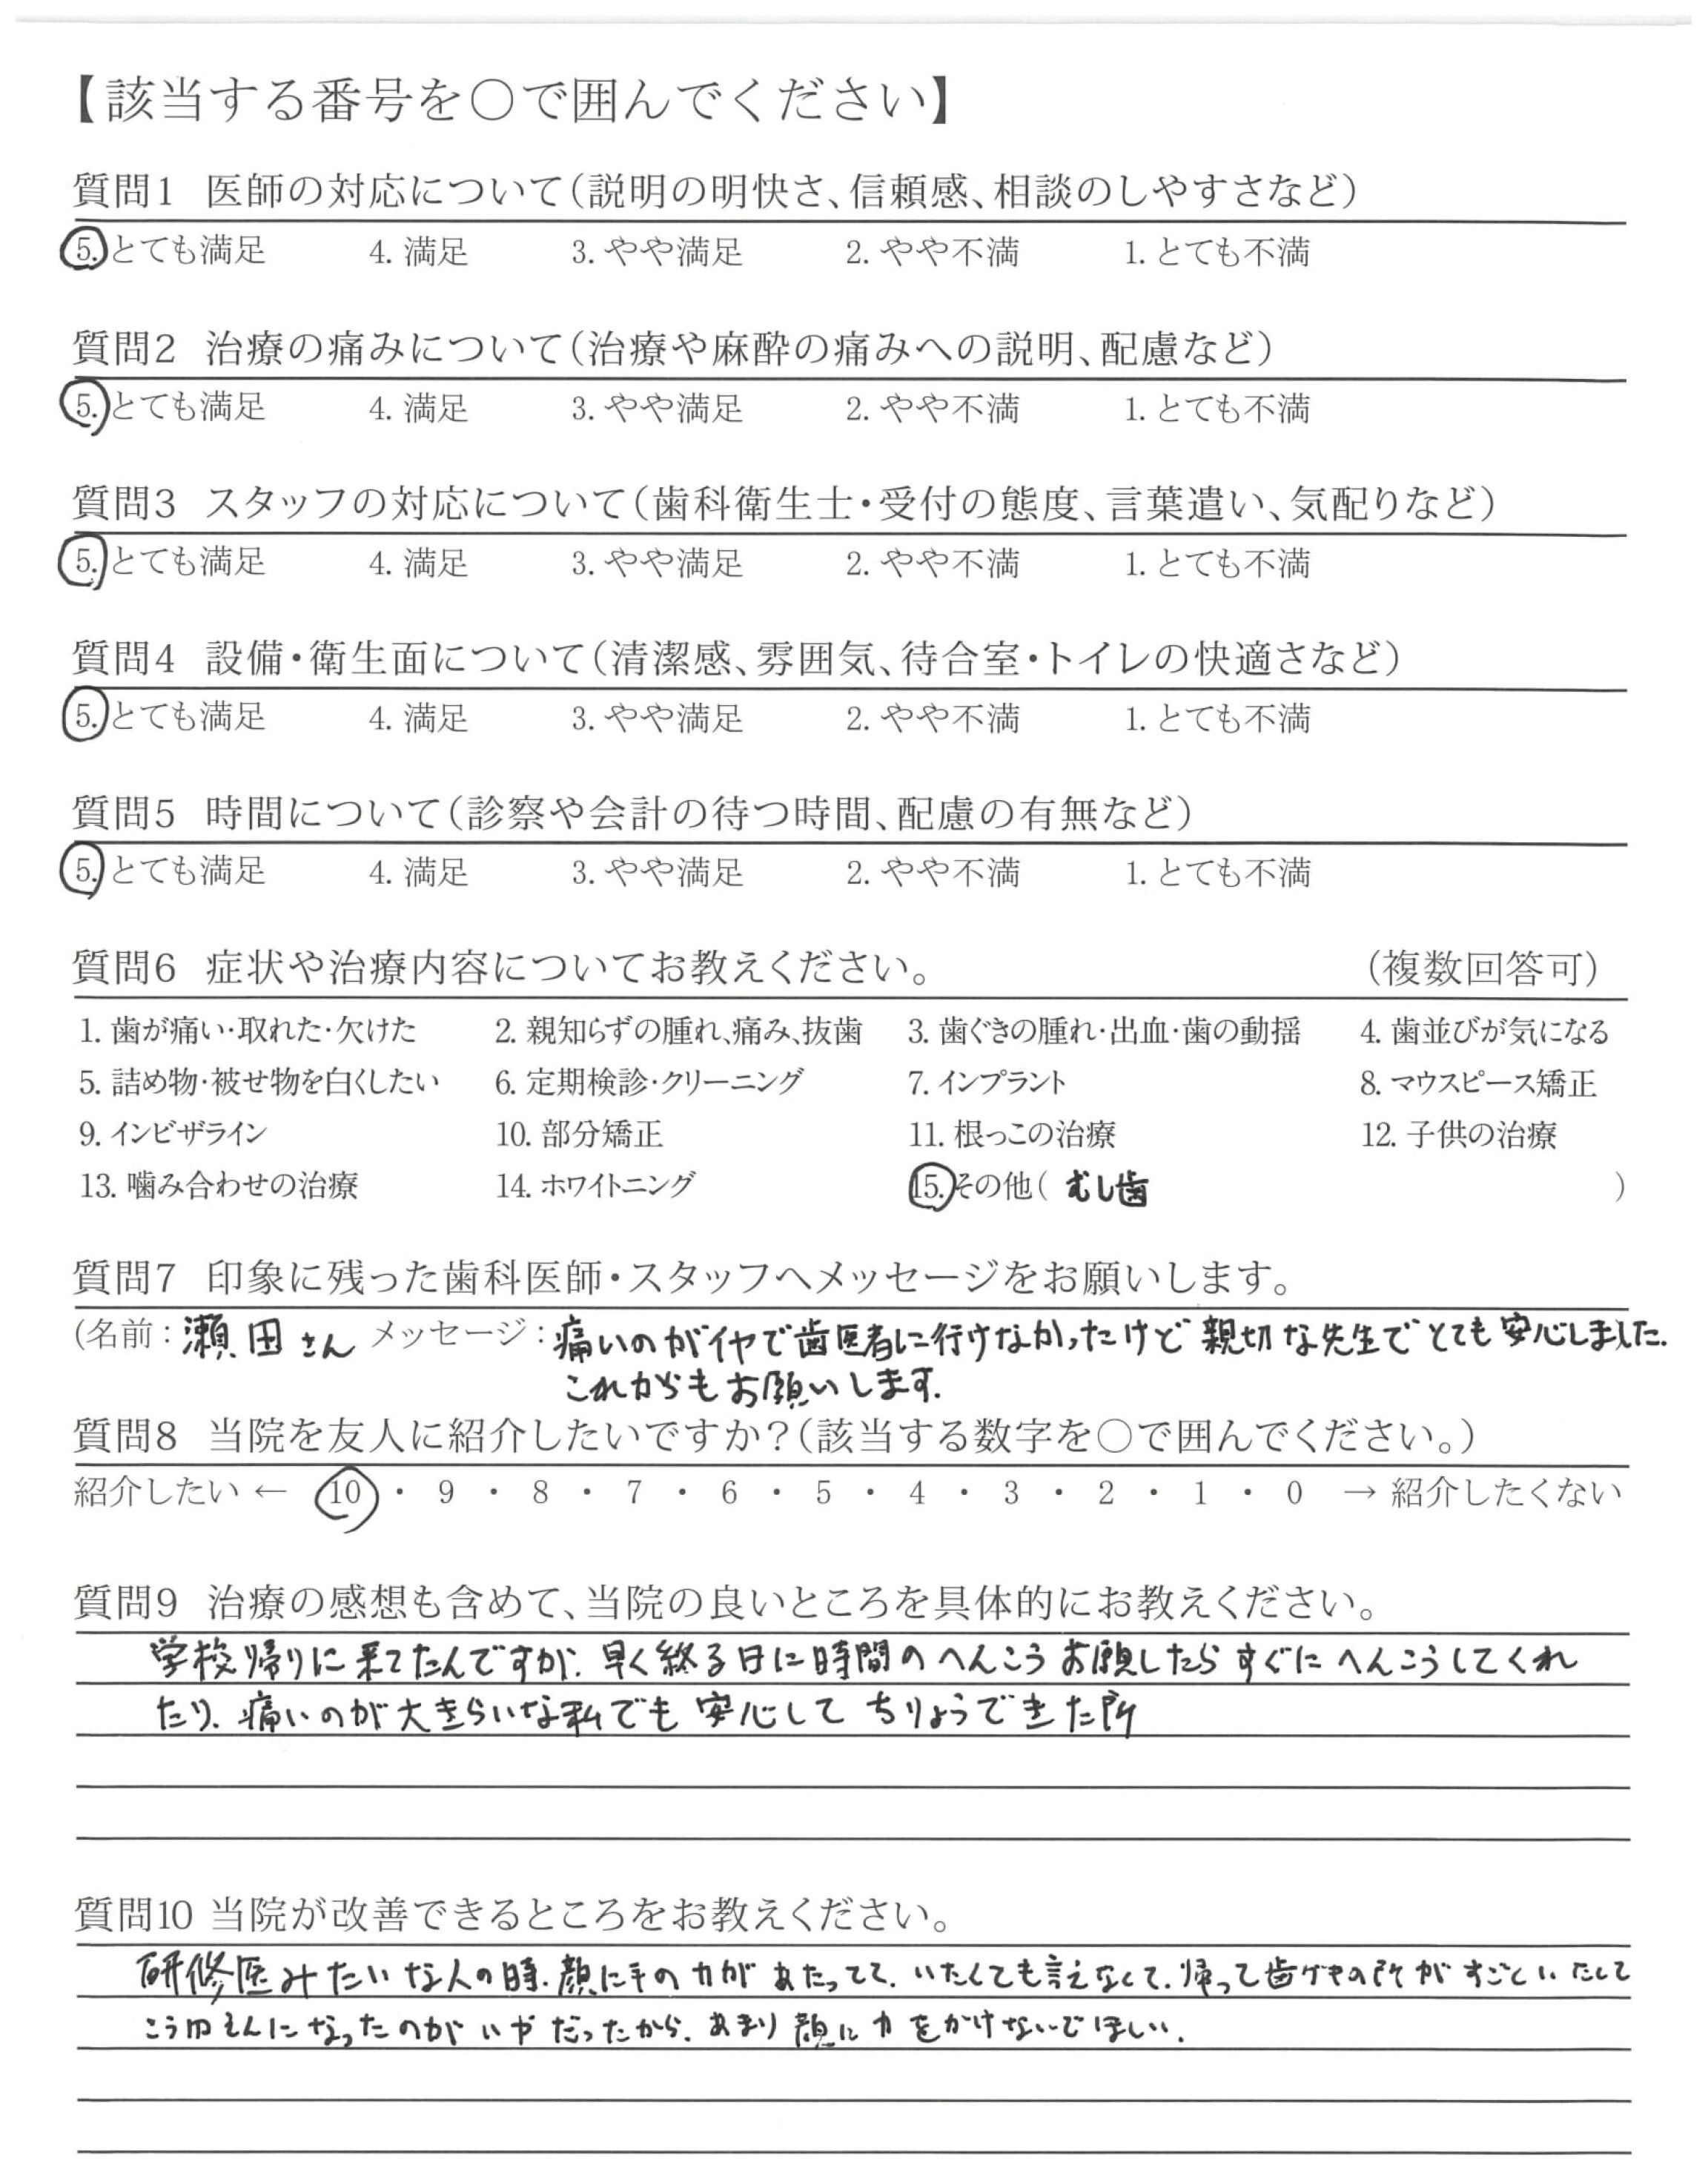 【該当する番号を〇で囲んでください】
質問1 医師の対応について（説明の明快さ、信頼感、相談のしやすさなど）
5. とても満足 4. 満足 3. やや満足 2. やや不満 1. とても不満
質問2 治療の痛みについて（治療や麻酔の痛みへの説明、配慮など）
5. とても満足 4. 満足 3. やや満足 2. やや不満 1. とても不満
質問3 スタッフの対応について（歯科衛生士・受付の態度、言葉遣い、気配りなど）
5. とても満足 4. 満足 3. やや満足 2. やや不満 1. とても不満
質問4 設備・衛生面について（清潔感、雰囲気、待合室・トイレの快適さなど）
5. とても満足 4. 満足 3. やや満足 2. やや不満 1. とても不満
質問5 時間について（診察や会計の待つ時間、配慮の有無など）
5. とても満足 4. 満足 3. やや満足 2. やや不満 1. とても不満
質問6 症状や治療内容についてお教えください。 （複数回答可）
1. 歯が痛い・取れた・欠けた 2. 親知らずの腫れ、痛み、抜歯 3. 歯ぐきの腫れ・出血・歯の動揺 4. 歯並びが気になる
5. 詰め物・被せ物を白くしたい 6. 定期検診・クリーニング 7. インプラント 8. マウスピース矯正
9. インビザライン 10. 部分矯正 11. 根っこの治療 12. 子供の治療
13. 噛み合わせの治療 14. ホワイトニング 15. その他（ むし歯 ）
質問7 印象に残った歯科医師・スタッフへメッセージをお願いします。
（名前：瀬田さん メッセージ：痛いのがイヤで歯医者に行けなかったけど親切な先生でとても安心しました.
これからもお願いします.
質問8 当院を友人に紹介したいですか？（該当する数字を〇で囲んでください。）
紹介したい ← 10 ・ 9 ・ 8 ・ 7 ・ 6 ・ 5 ・ 4 ・ 3 ・ 2 ・ 1 ・ 0 → 紹介したくない
質問9 治療の感想も含めて、当院の良いところを具体的にお教えください。
学校帰りに来てたんですが、早く終る日に時間のへんこうお願したらすぐにへんこうしてくれ
たり、痛いのが大きらいな私でも安心してちりょうできた所
質問10 当院が改善できるところをお教えください。
研修医みたいな人の時、顔に手の力があたってて、いたくても言えなくて、帰って歯グキの所がすごく
こうゆえんになったのがいやだったから、あまり顔に力をかけないでほしい.